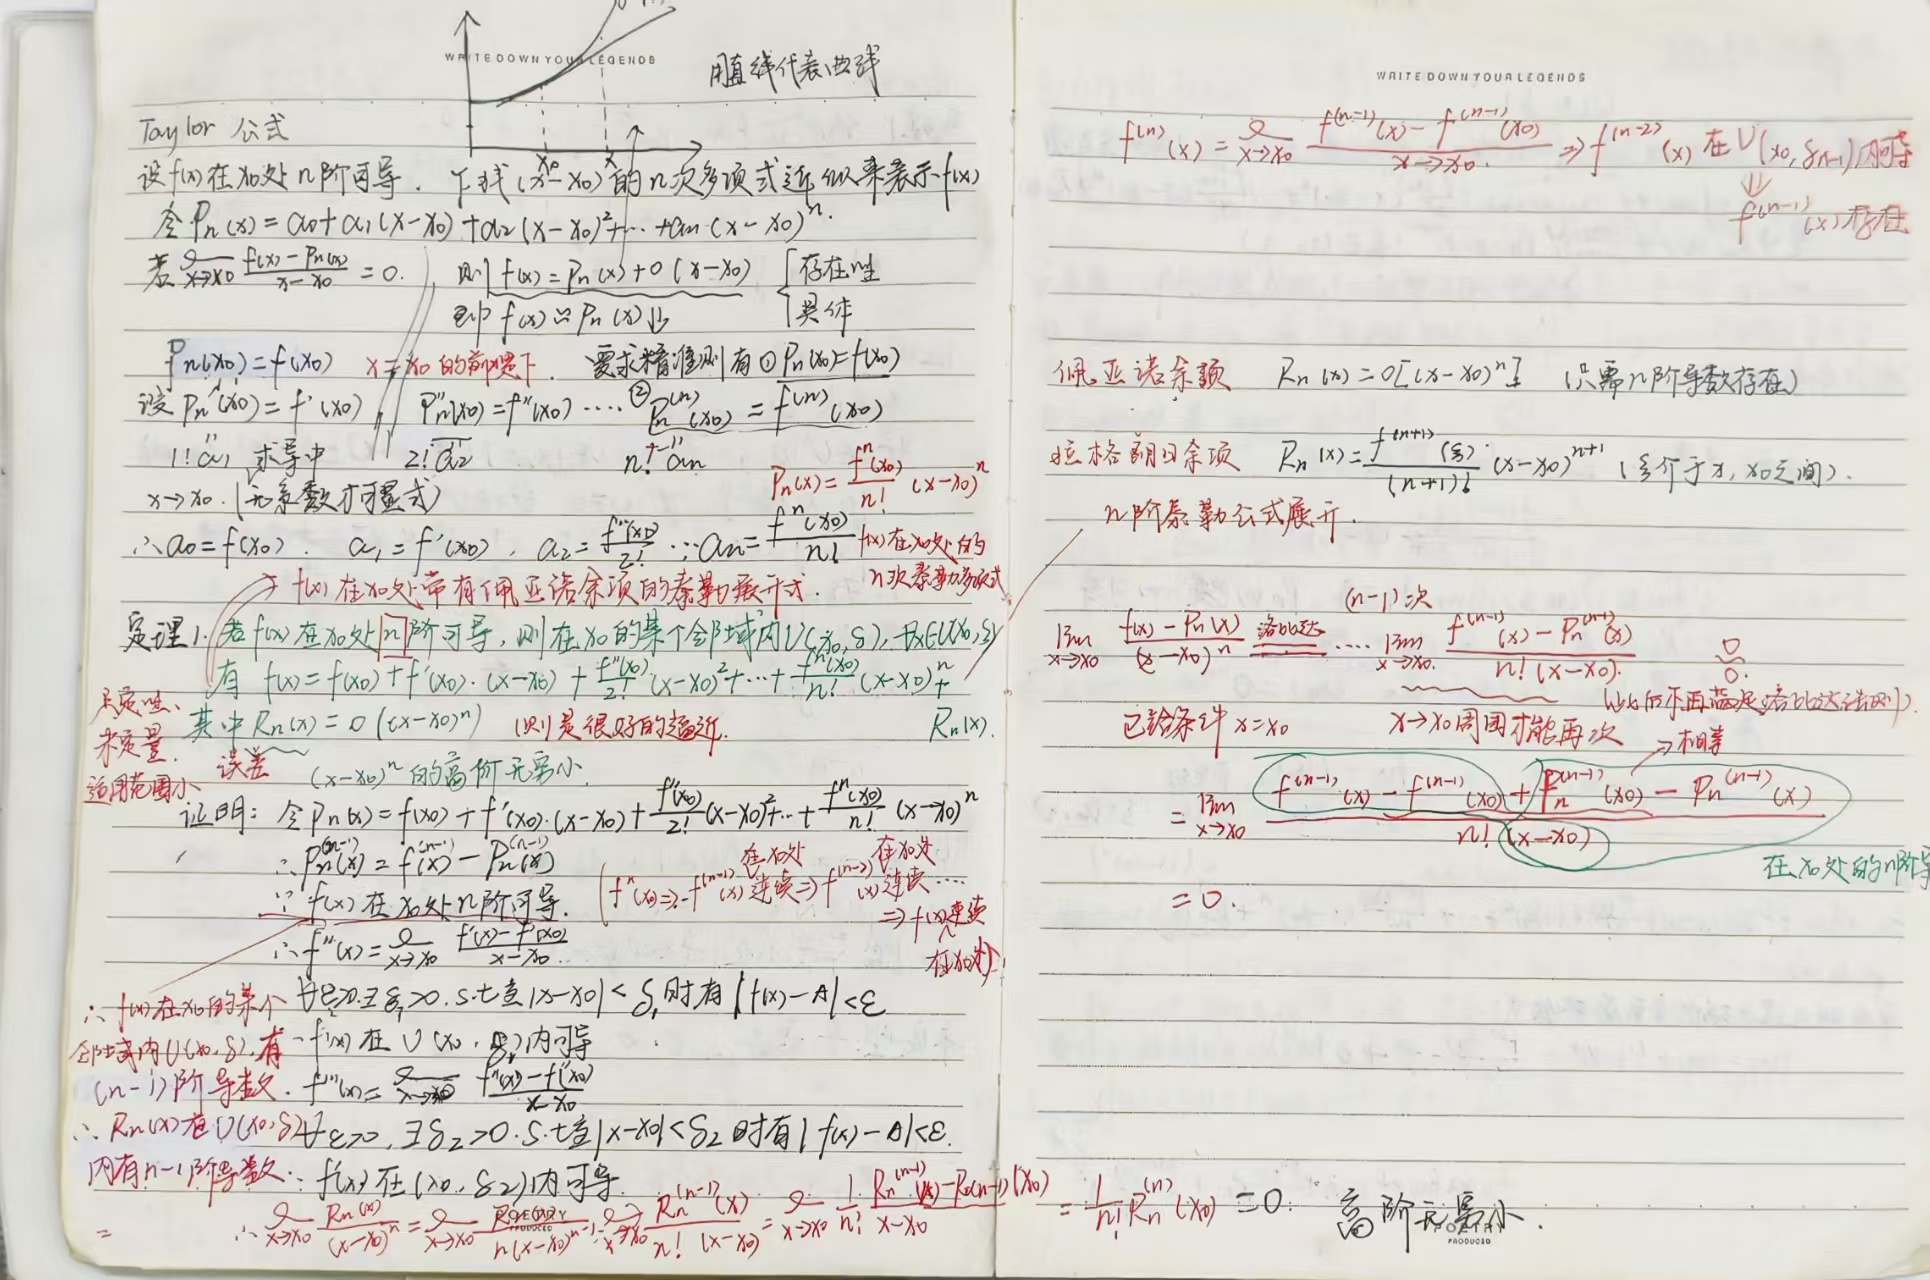 WRITE DOWN YOUR LEGENDS
用直线代表曲线
x₀ x
Taylor 公式
设f(x)在x₀处n阶可导. 下找(x-x₀)的n次多项式近似来表示f(x)
令Pₙ(x)=a₀+a₁(x-x₀)+a₂(x-x₀)²+…+aₙ(x-x₀)ⁿ.
若 x→x₀ (f(x)-Pₙ(x))/(x-x₀) =0. 则 f(x)=Pₙ(x)+o(x-x₀) { 存在性
即 f(x)≈Pₙ(x) 具体
Pₙ(x₀)=f(x₀) x=x₀的前提下. 要求精准则有①Pₙ(x₀)=f(x₀)
设Pₙ'(x₀)=f'(x₀), Pₙ''(x₀)=f''(x₀)……②Pₙ⁽ⁿ⁾(x₀)=f⁽ⁿ⁾(x₀)
1!a₁ 求导中 2!a₂ n!aₙ
x→x₀.(无系数才可显式)
Pₙ(x)=fⁿ(x₀)/n! (x-x₀)ⁿ
∴a₀=f(x₀). a₁=f'(x₀), a₂=f''(x₀)/2! … aₙ=fⁿ(x₀)/n! f(x)在x₀处的
n次泰勒多项式
→ f(x)在x₀处带有佩亚诺余项的泰勒展开式.
定理1. 若f(x)在x₀处n阶可导, 则在x₀的某个邻域内U(x₀,δ), ∀x∈U(x₀,δ)
有 f(x)=f(x₀)+f'(x₀)·(x-x₀)+f''(x₀)/2!·(x-x₀)²+…+fⁿ(x₀)/n!(x-x₀)ⁿ+
Rₙ(x).
其中Rₙ(x)=o((x-x₀)ⁿ) 则是很好的逼近.
只定性、
未定量.
适用范围小
误差 (x-x₀)ⁿ的高阶无穷小.
证明: 令Pₙ(x)=f(x₀)+f'(x₀)·(x-x₀)+f''(x₀)/2!(x-x₀)²+…+fⁿ(x₀)/n!(x-x₀)ⁿ
∴Pₙ⁽ⁿ⁻¹⁾(x)=f⁽ⁿ⁻¹⁾(x)-Pₙ⁽ⁿ⁻¹⁾(x)
在x₀处 在x₀处
∵f(x)在x₀处n阶可导. (fⁿ(x₀)⇒f⁽ⁿ⁻¹⁾(x)连续⇒f⁽ⁿ⁻²⁾(x)连续……
⇒f(x)连续
在x₀处)
∴f''(x)= x→x₀ (f'(x)-f'(x₀))/(x-x₀)
∀ε>0.∃δ₁>0.s.t当|x-x₀|<δ₁时有|f(x)-A|<ε
∴f(x)在x₀的某个
邻域内U(x₀,δ),有
(n-1)阶导数.
∴Rₙ(x)在U(x₀,δ)
内有n-1阶导数
f(x)在U(x₀,δ₁)内可导
f'''(x)= x→x₀ (f''(x)-f''(x₀))/(x-x₀)
∀ε>0,∃δ₂>0.s.t当|x-x₀|<δ₂时有|f(x)-A|<ε.
∴f(x)在(x₀,δ₂)内可导.
∴ x→x₀ Rₙ(x)/(x-x₀)ⁿ = x→x₀ /n(x-x₀)ⁿ⁻¹ … x→x₀ Rₙ⁽ⁿ⁻¹⁾(x)/n!(x-x₀) = x→x₀ 1/n! (Rₙ⁽ⁿ⁻¹⁾(x)-Rₙ⁽ⁿ⁻¹⁾(x₀))/(x-x₀) = 1/n! Rₙ⁽ⁿ⁾(x₀)=0. 高阶无穷小.
POETRY
PRODUCED
WRITE DOWN YOUR LEGENDS
f⁽ⁿ⁾(x)= x→x₀ (f⁽ⁿ⁻¹⁾(x)-f⁽ⁿ⁻¹⁾(x₀))/(x→x₀) ⇒f⁽ⁿ⁻²⁾(x)在U(x₀,δₙ₋₁)内可导
⇓
f⁽ⁿ⁻¹⁾(x)存在
佩亚诺余项 Rₙ(x)=o[(x-x₀)ⁿ] (只需n阶导数存在)
拉格朗日余项 Rₙ(x)=f⁽ⁿ⁺¹⁾(ξ)/(n+1)! (x-x₀)ⁿ⁺¹ (ξ介于x,x₀之间).
n阶泰勒公式展开.
(n-1)次
lim x→x₀ (f(x)-Pₙ(x))/(x-x₀)ⁿ 洛必达 …. lim x→x₀ (f⁽ⁿ⁻¹⁾(x)-Pₙ⁽ⁿ⁻¹⁾(x))/n!(x-x₀). 0/0.
(此后不再满足洛必达法则).
已给条件x=x₀ x→x₀周围才能再次 →相等
= lim x→x₀ (f⁽ⁿ⁻¹⁾(x)-f⁽ⁿ⁻¹⁾(x₀)+Pₙ⁽ⁿ⁻¹⁾(x₀)-Pₙ⁽ⁿ⁻¹⁾(x))/n!(x-x₀)
在x₀处的n阶导
=0.
POETRY
PRODUCED